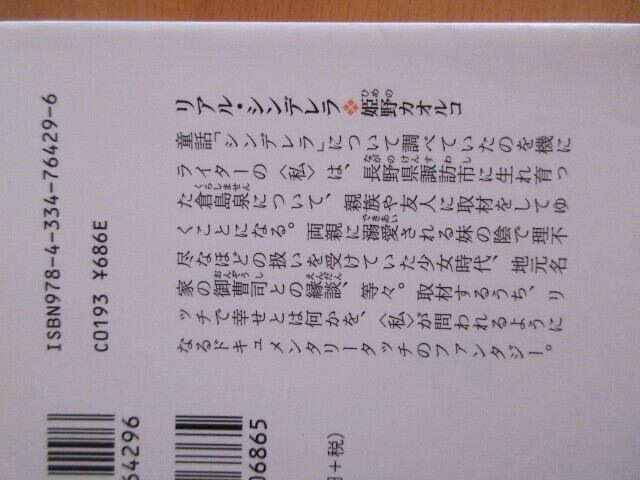 リアル・シンデレラ❖姫野カオルコ
ひめの
童話「シンデレラ」について調べていたのを機に
ライターの〈私〉は、長野県諏訪市に生れ育っ
ながのけんすわし
た倉島泉について、親族や友人に取材をしてゆ
くらしません
くことになる。両親に溺愛される妹の陰で理不
できあい
尽なほどの扱いを受けていた少女時代、地元名
家の御曹司との縁談、等々。取材するうち、リ
おんぞうし えんだん
ッチで幸せとは何かを、〈私〉が問われるように
なるドキュメンタリータッチのファンタジー。
ISBN978-4-334-76429-6
C0193 ¥686E
64296
06865
円+税)